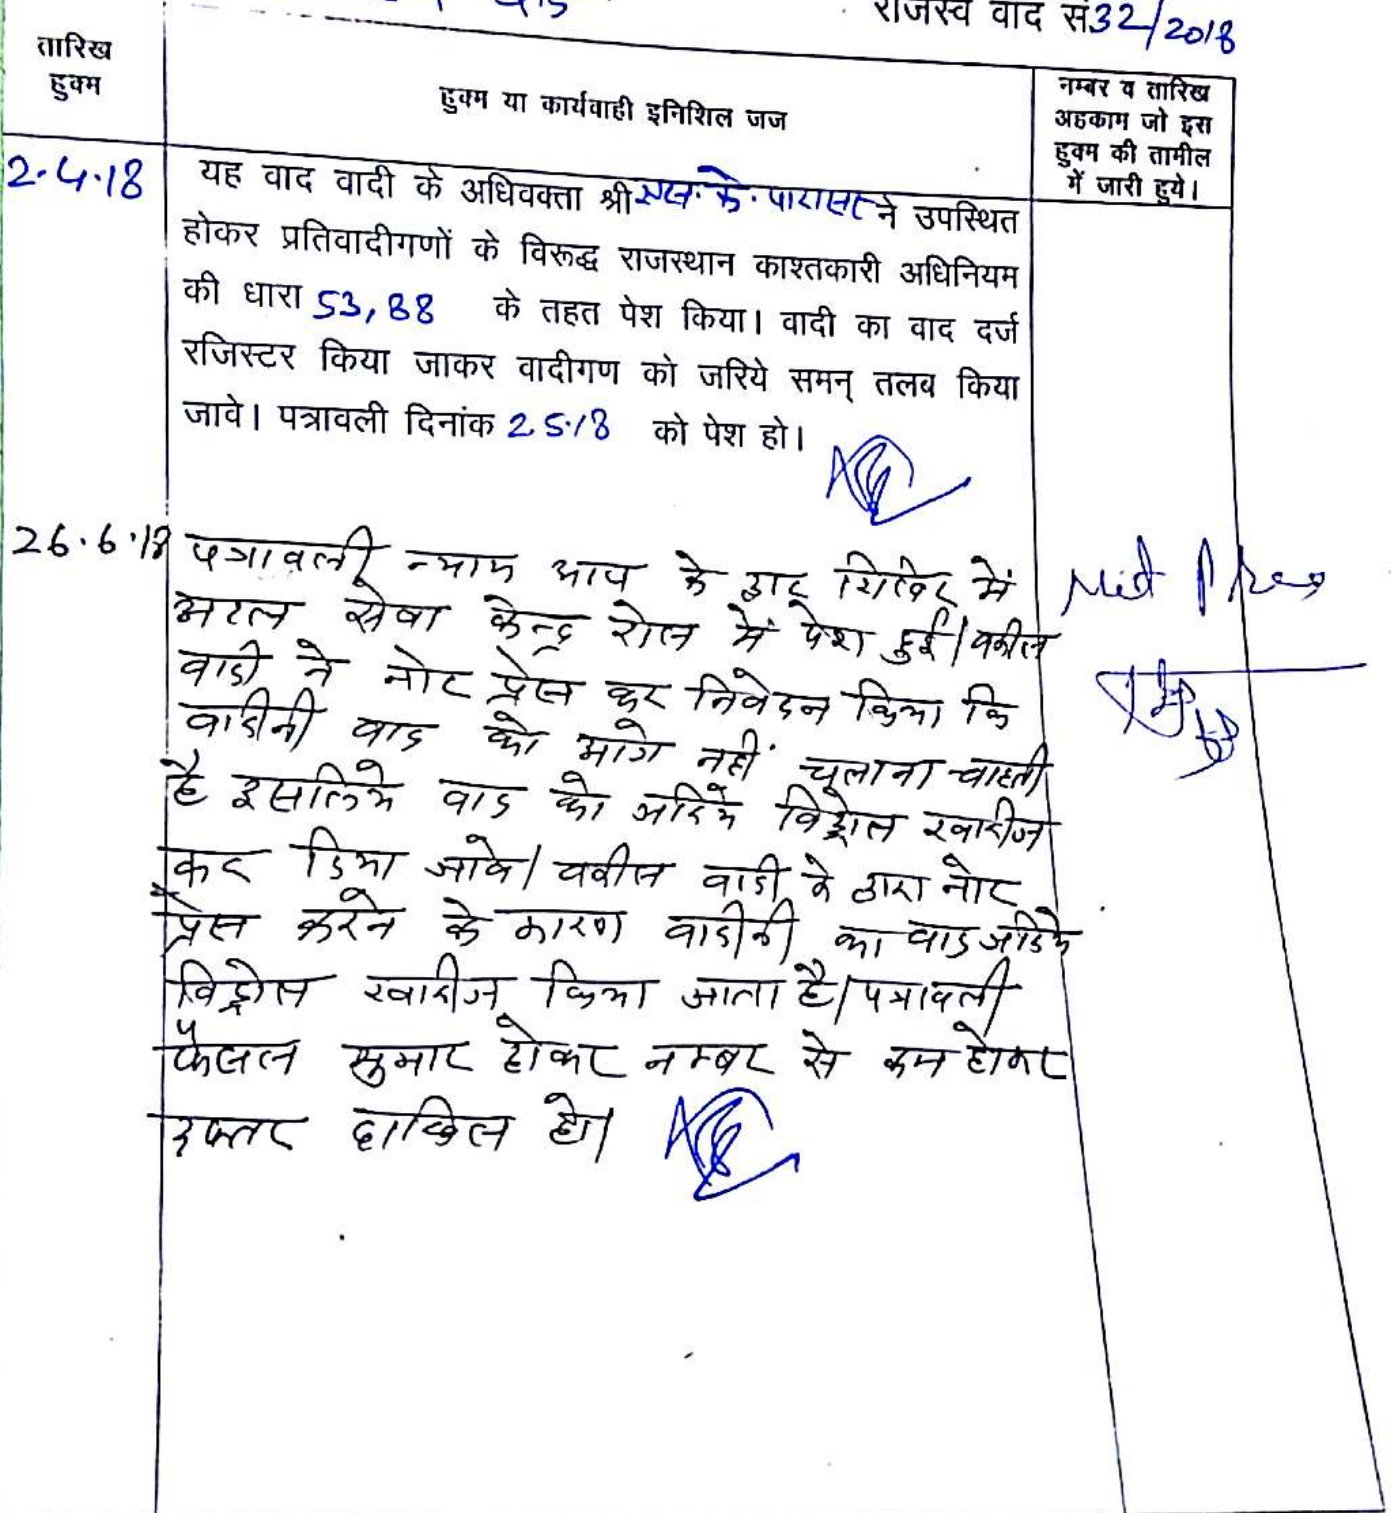 राजस्व वाद सं32/2018
तारिख
हुक्म
हुक्म या कार्यवाही इनिशिल जज
नम्बर व तारिख
अहकाम जो इस
हुक्म की तामील
में जारी हुये।
2.4.18
यह वाद वादी के अधिवक्ता श्री एस.के. पारासर ने उपस्थित
होकर प्रतिवादीगणों के विरूद्ध राजस्थान काश्तकारी अधिनियम
की धारा 53,88 के तहत पेश किया। वादी का वाद दर्ज
रजिस्टर किया जाकर वादीगण को जरिये समन् तलब किया
जावे। पत्रावली दिनांक 2.5.18 को पेश हो।
26.6.18
पत्रावली न्याय आप के द्वार शिविर में
अटल सेवा केन्द्र रोल में पेश हुई। वकील
वादी ने नोट प्रेस कर निवेदन किया कि
वादीनी वाद को आगे नहीं चलाना चाहती
है इसलिये वाद को जरिये विड्रोल खारीज
कर दिया जावे। वकील वादी के द्वारा नोट
प्रेस करने के कारण वादीनी का वाद जरिये
विड्रोल खारीज किया जाता है। पत्रावली
फैसल सुमार होकर नम्बर से कम होकर
दफ्तर दाखिल हो।
Not Press